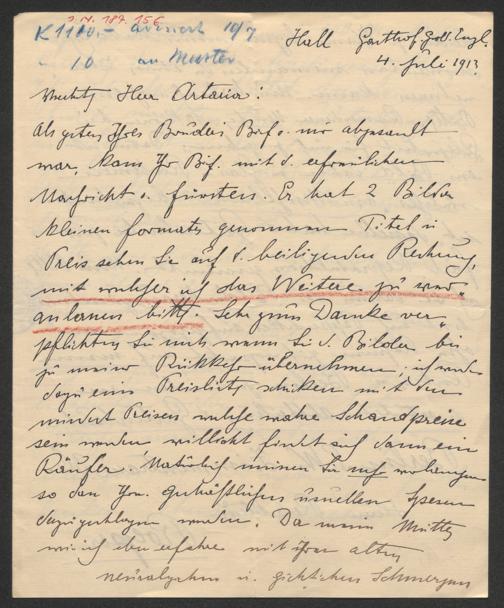 J.N. 187.156
K 1100,– avisiert 10/7
" 10 an Muster
Hall Gasthof Gold. Engl.
4. Juli 1913
Herr Artaria!
Als gestern Ihres Bruders Brf. v. mir abgesandt
war, kam Ihr Brf. mit d. erfreulichen
Nachricht v. Fürsten. Er hat 2 Bilder
kleinen Formates genommen Titel u
Preis sehen Sie auf d. beiliegenden Rechnung,
mit welcher ich das Weitere zu ver-
anlassen bitte. Sehr zum Danke ver-
pflichten Sie mich wenn Sie d. Bilder bis
zu meiner Rückkehr übernehmen; ich werde
dazu eine Preisliste schicken mit den
mindest Preisen welche wahre Schandpreise
sein werden vielleicht findet sich dann ein
Käufer. Natürlich müssen Sie
so dan Ihre geschäftlichen usuellen Spesen
dazugeschlagen werden. Da meine Mutter
wie ich eben erfahre mit Ihren alten
neuralgischen u. gichtischen Schmerzen